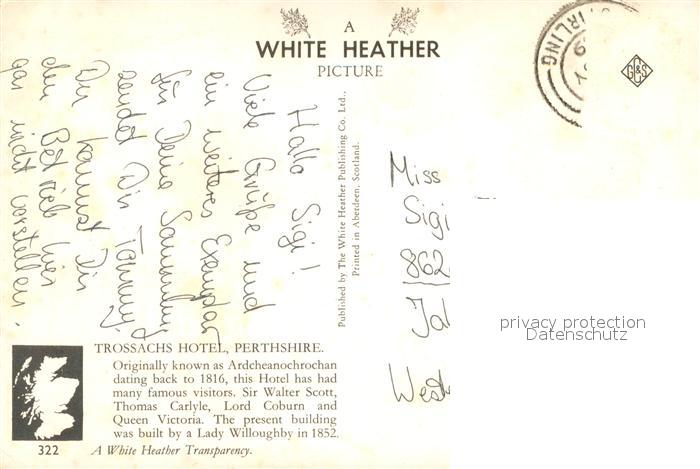 A
WHITE HEATHER
PICTURE
STIRLING
GC&S
Hallo Sigi!
Viele Grüße und
ein weiteres Exemplar
für Deine Sammlung
sendet Dir Tommy.
Du kannst Dir
den Betrieb hier
gar nicht vorstellen.
Published by The White Heather Publishing Co. Ltd.,
Printed in Aberdeen, Scotland.
Miss
Sigi
862
West
privacy protection
Datenschutz
TROSSACHS HOTEL, PERTHSHIRE.
Originally known as Ardcheanochrochan
dating back to 1816, this Hotel has had
many famous visitors. Sir Walter Scott,
Thomas Carlyle, Lord Coburn and
Queen Victoria. The present building
was built by a Lady Willoughby in 1852.
322
A White Heather Transparency.